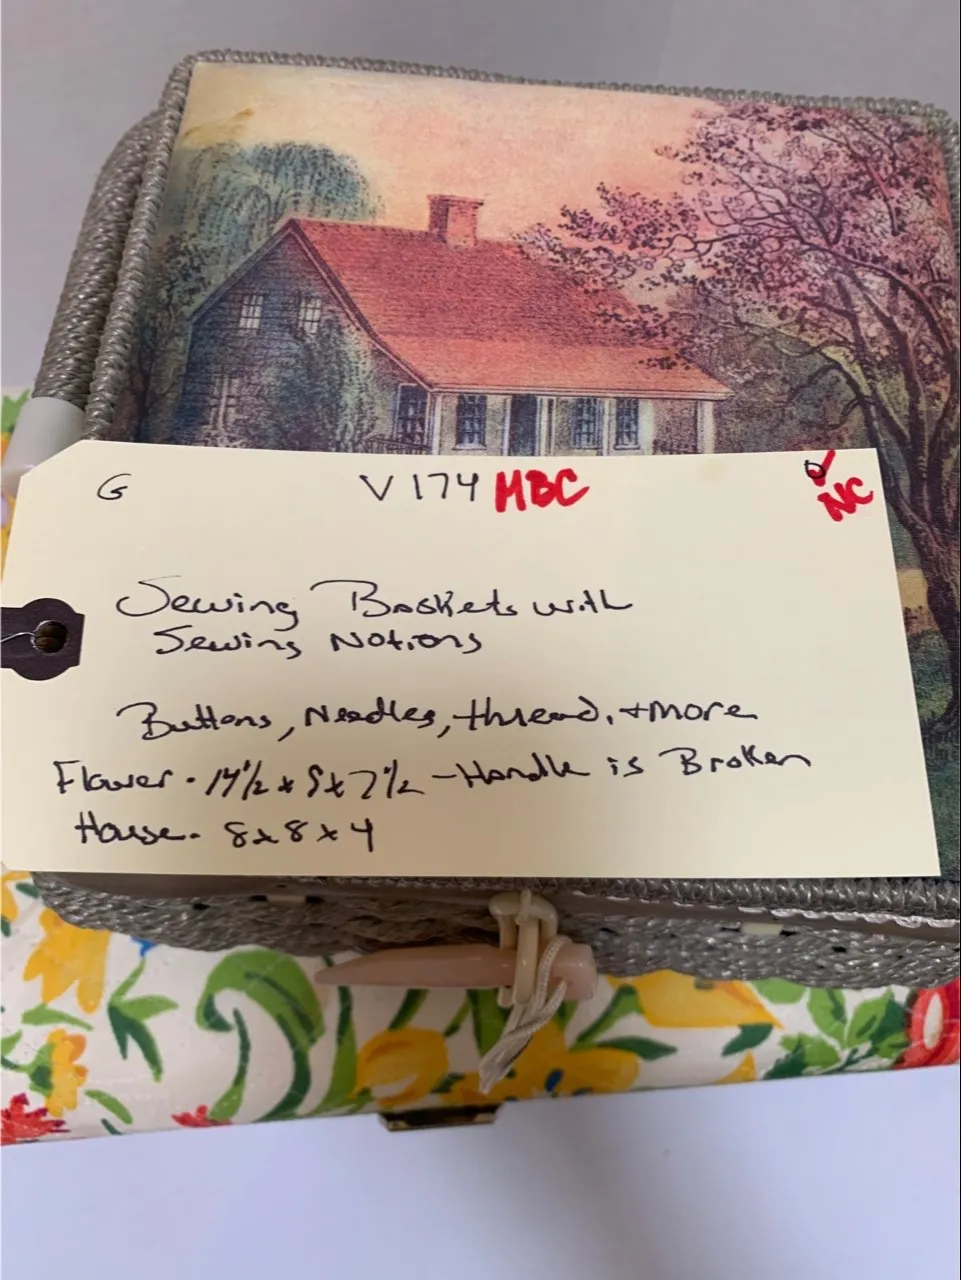 G V174 MBC NC
Sewing Baskets with
Sewing Notions
Buttons, Needles, thread, + more
Flower - 14 1/2 x 9 x 7 1/2 - Handle is Broken
House - 8 x 8 x 4